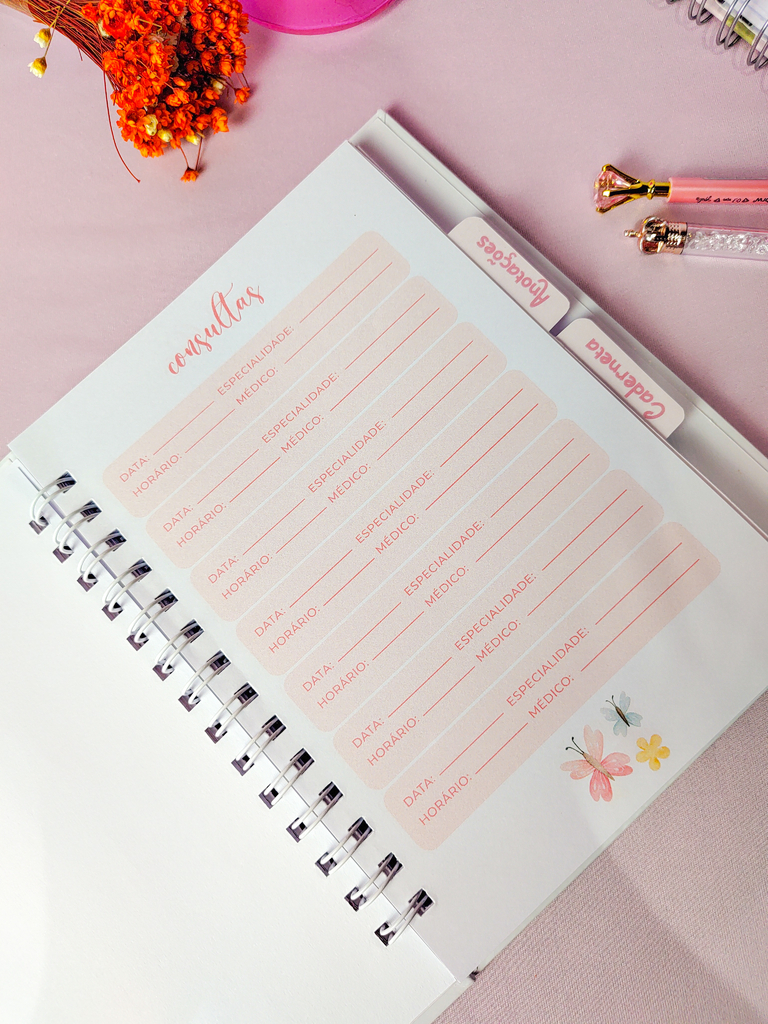 consultas
DATA: ESPECIALIDADE:
HORÁRIO: MÉDICO:
DATA: ESPECIALIDADE:
HORÁRIO: MÉDICO:
DATA: ESPECIALIDADE:
HORÁRIO: MÉDICO:
DATA: ESPECIALIDADE:
HORÁRIO: MÉDICO:
DATA: ESPECIALIDADE:
HORÁRIO: MÉDICO:
DATA: ESPECIALIDADE:
HORÁRIO: MÉDICO:
DATA: ESPECIALIDADE:
HORÁRIO: MÉDICO:
Anotações
Caderneta